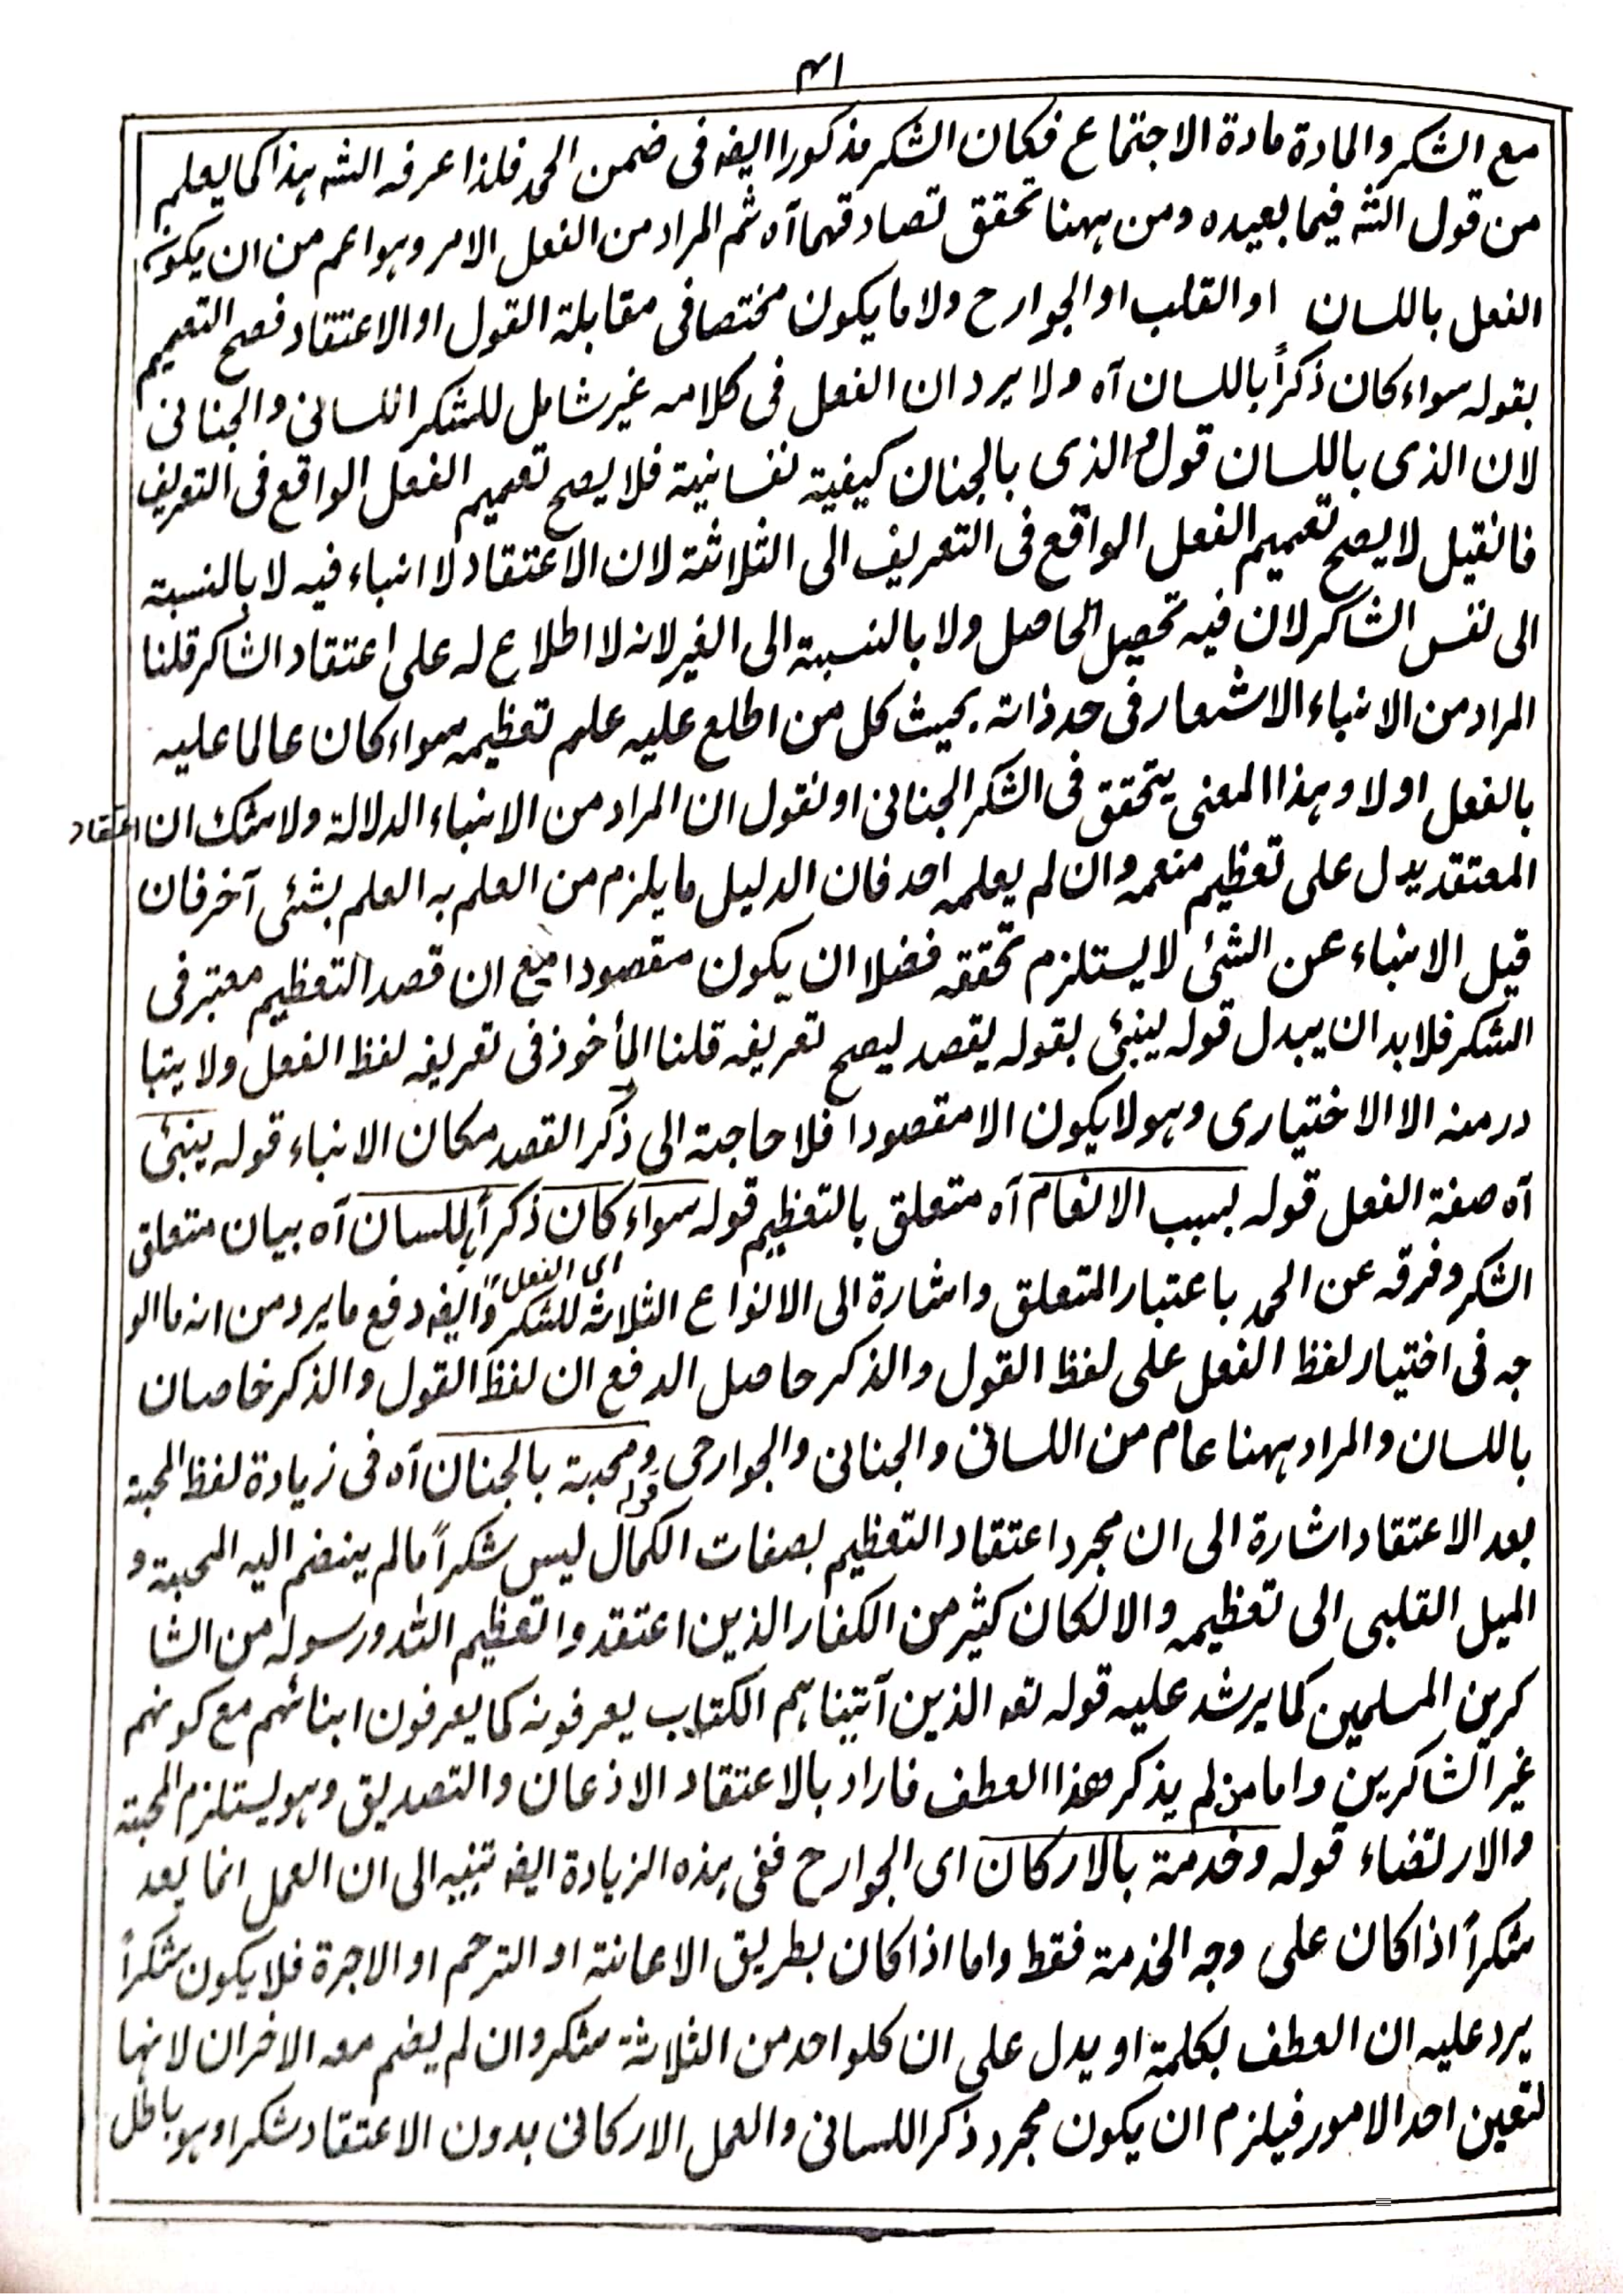 ۴۱
مع الشكر والمادة مادة الاجتماع فكان الشكر مذكورا ايضه فى ضمن الحمد فلذا عرفه الشه ہذا كما يعلم
من قول الشه فيما بعيده ومن ہہنا تحقق تصادقهما آه ثم المراد من الفعل الامر وہو اعم من ان يكون
الفعل باللسان او القلب او الجوارح ولا ما يكون مختصا فى مقابلة القول او الاعتقاد فصح التعميم
بقوله سواء كان ذكراً باللسان آه ولا يرد ان الفعل فى كلامه غير شامل للشكر اللسانى والجنانى
لان الذى باللسان قول والذى بالجنان كيفية نفسانية فلا يصح تعميم الفعل الواقع فى التعريف
فانقيل لا يصح تعميم الفعل الواقع فى التعريف الى الثلاثة لان الاعتقاد لا انباء فيه لا بالنسبة
الى نفس الشاكر لان فيه تحصيل الحاصل ولا بالنسبة الى الغير لانه لا اطلاع له على اعتقاد الشاكر قلنا
المراد من الانباء الاشعار فى حد ذاته بحيث كل من اطلع عليه علم تعظيمه سواء كان عالما عليه
بالفعل اولا وہذا المعنى يتحقق فى الشكر الجنانى او نقول ان المراد من الانباء الدلالة ولا شك ان اعتقاد
المعتقد يدل على تعظيم منعمه وان لم يعلمه احد فان الدليل ما يلزم من العلم به العلم بشئى آخر فان
قيل الانباء عن الشئى لا يستلزم تحققه فضلا ان يكون مقصودا مع ان قصد التعظيم معتبر فى
الشكر فلا بد ان يبدل قوله ينبئى بقوله يقصد ليصح تعريفه قلنا المأخوذ فى تعريفه لفظ الفعل ولا يتبا
در منه الا الاختيارى وہو لا يكون الا مقصودا فلا حاجة الى ذكر القصد مكان الانباء قوله ينبئى
آه صفة الفعل قوله بسبب الانعام آه متعلق بالتعظيم قوله سواء كان ذكراً باللسان آه بيان متعلق
اى الفعل
الشكر وفرقه عن الحمد باعتبار المتعلق واشارة الى الانواع الثلاثة للشكر وايضه دفع ما يرد من انه ما الو
جه فى اختيار لفظ الفعل على لفظ القول والذكر حاصل الدفع ان لفظ القول والذكر خاصان
باللسان والمراد ہہنا عام من اللسانى والجنانى والجوارحى قوله ومحبة بالجنان آه فى زيادة لفظ المحبة
بعد الاعتقاد اشارة الى ان مجرد اعتقاد التعظيم بصفات الكمال ليس شكراً مالم ينضم اليه المحبة و
الميل القلبى الى تعظيمه والا لكان كثير من الكفار الذين اعتقدوا تعظيم الله ورسوله من الشا
كرين المسلمين كما يرشد عليه قوله تعه الذين آتينا ہم الكتاب يعرفونه كما يعرفون ابنائهم مع كونهم
غير الشاكرين واما من لم يذكر هذا العطف فاراد بالاعتقاد الاذعان والتصديق وہو يستلزم المحبة
والارتضاء قوله وخدمة بالاركان اى الجوارح ففى ہذه الزيادة ايضه تنبيه الى ان العمل انما يعد
شكراً اذا كان على وجه الخدمة فقط واما اذا كان بطريق الاعانة او الترحم او الاجرة فلا يكون شكراً
يرد عليه ان العطف بكلمة او يدل على ان كلواحد من الثلاثة شكر وان لم يضم معه الاخران لانها
لتعين احد الامور فيلزم ان يكون مجرد ذكر اللسانى والعمل الاركانى بدون الاعتقاد شكرا وہو باطل